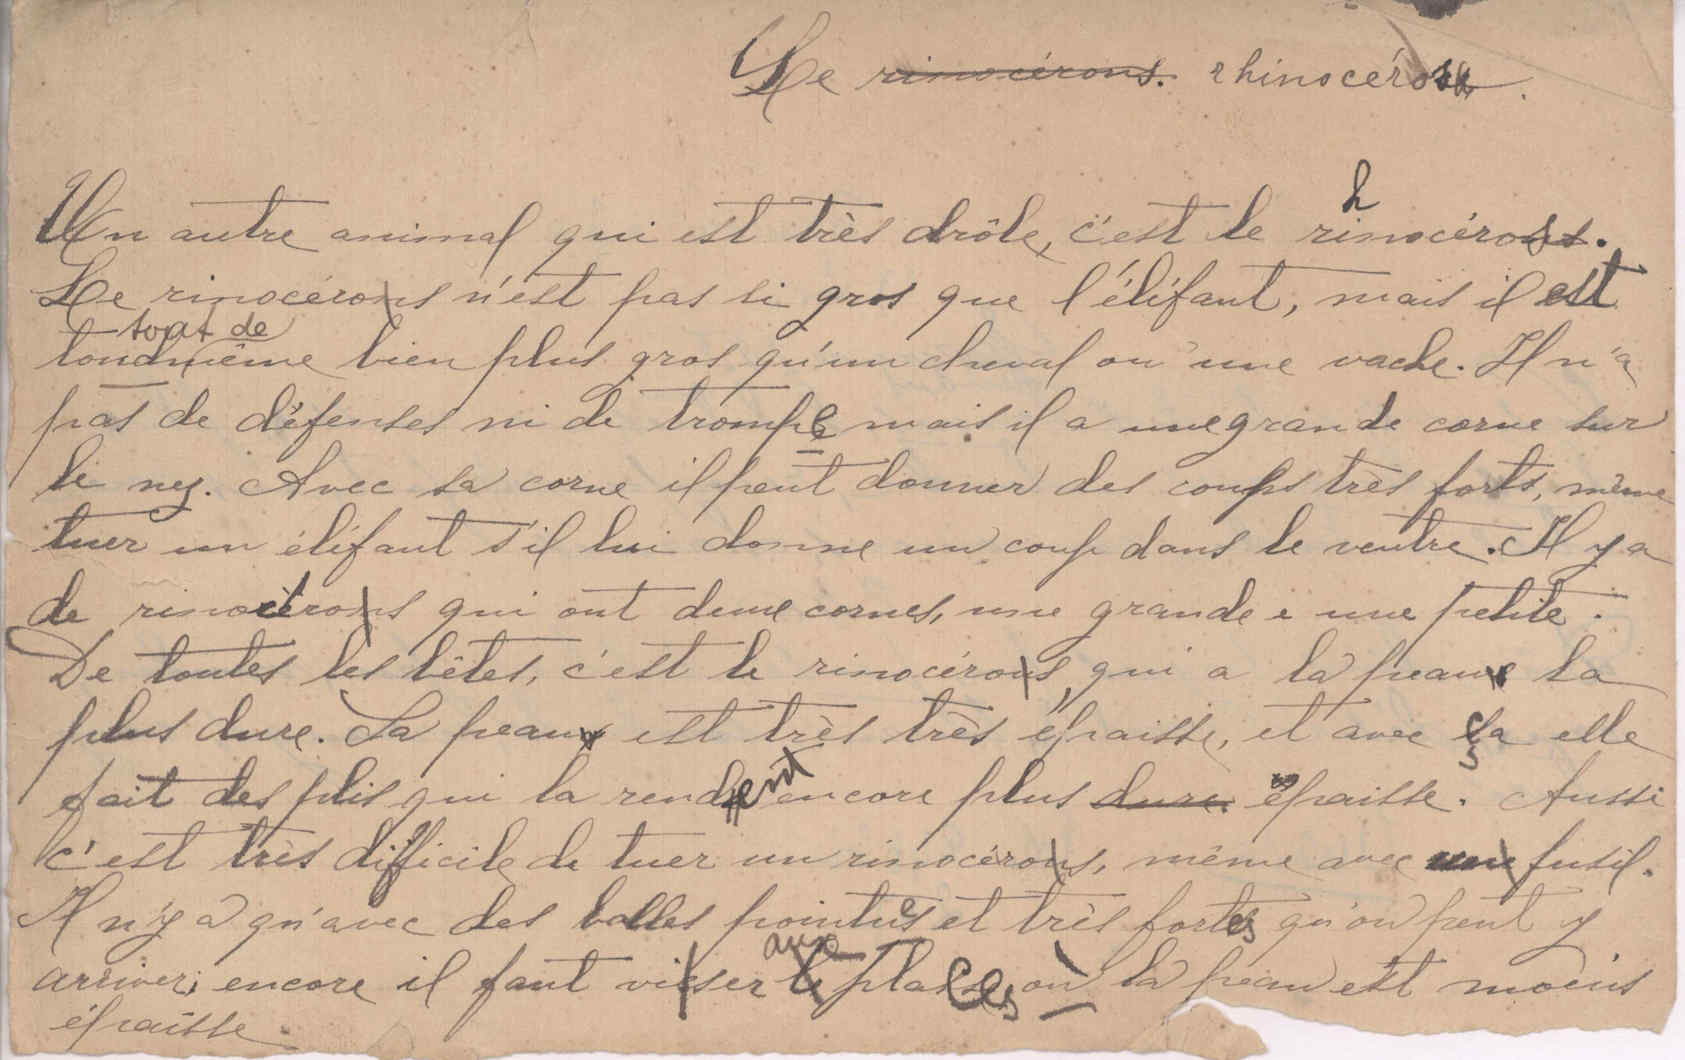 Le rinocérons. rhinocéros.
h
Un autre animal qui est très drôle, c'est le rinocéros.
Le rinocérons n'est pas si gros que l'élifant, mais il est
tout de
toudmême bien plus gros qu'un cheval ou une vache. Il n'a
pas de défenses ni de trompe mais il a une grande corne sur
le nez. Avec sa corne il peut donner des coups très forts, même
tuer un élifant s'il lui donne un coup dans le ventre. Il y a
de rinocérons qui ont deux cornes, une grande e une petite.
De toutes les bêtes, c'est le rinocérons, qui a la peaux la
plus dure. Sa peaux est très très épaisse, et avec ça elle
fait des plis qui la rendent encore plus dure. épaisse. Aussi
c'est très difficile de tuer un rinocérons, même avec une fusil.
Il n'y a qu'avec des balles pointues et très fortes qu'on peut y
aux
arriver; encore il faut visser le places, où la peau est moins
épaisse.